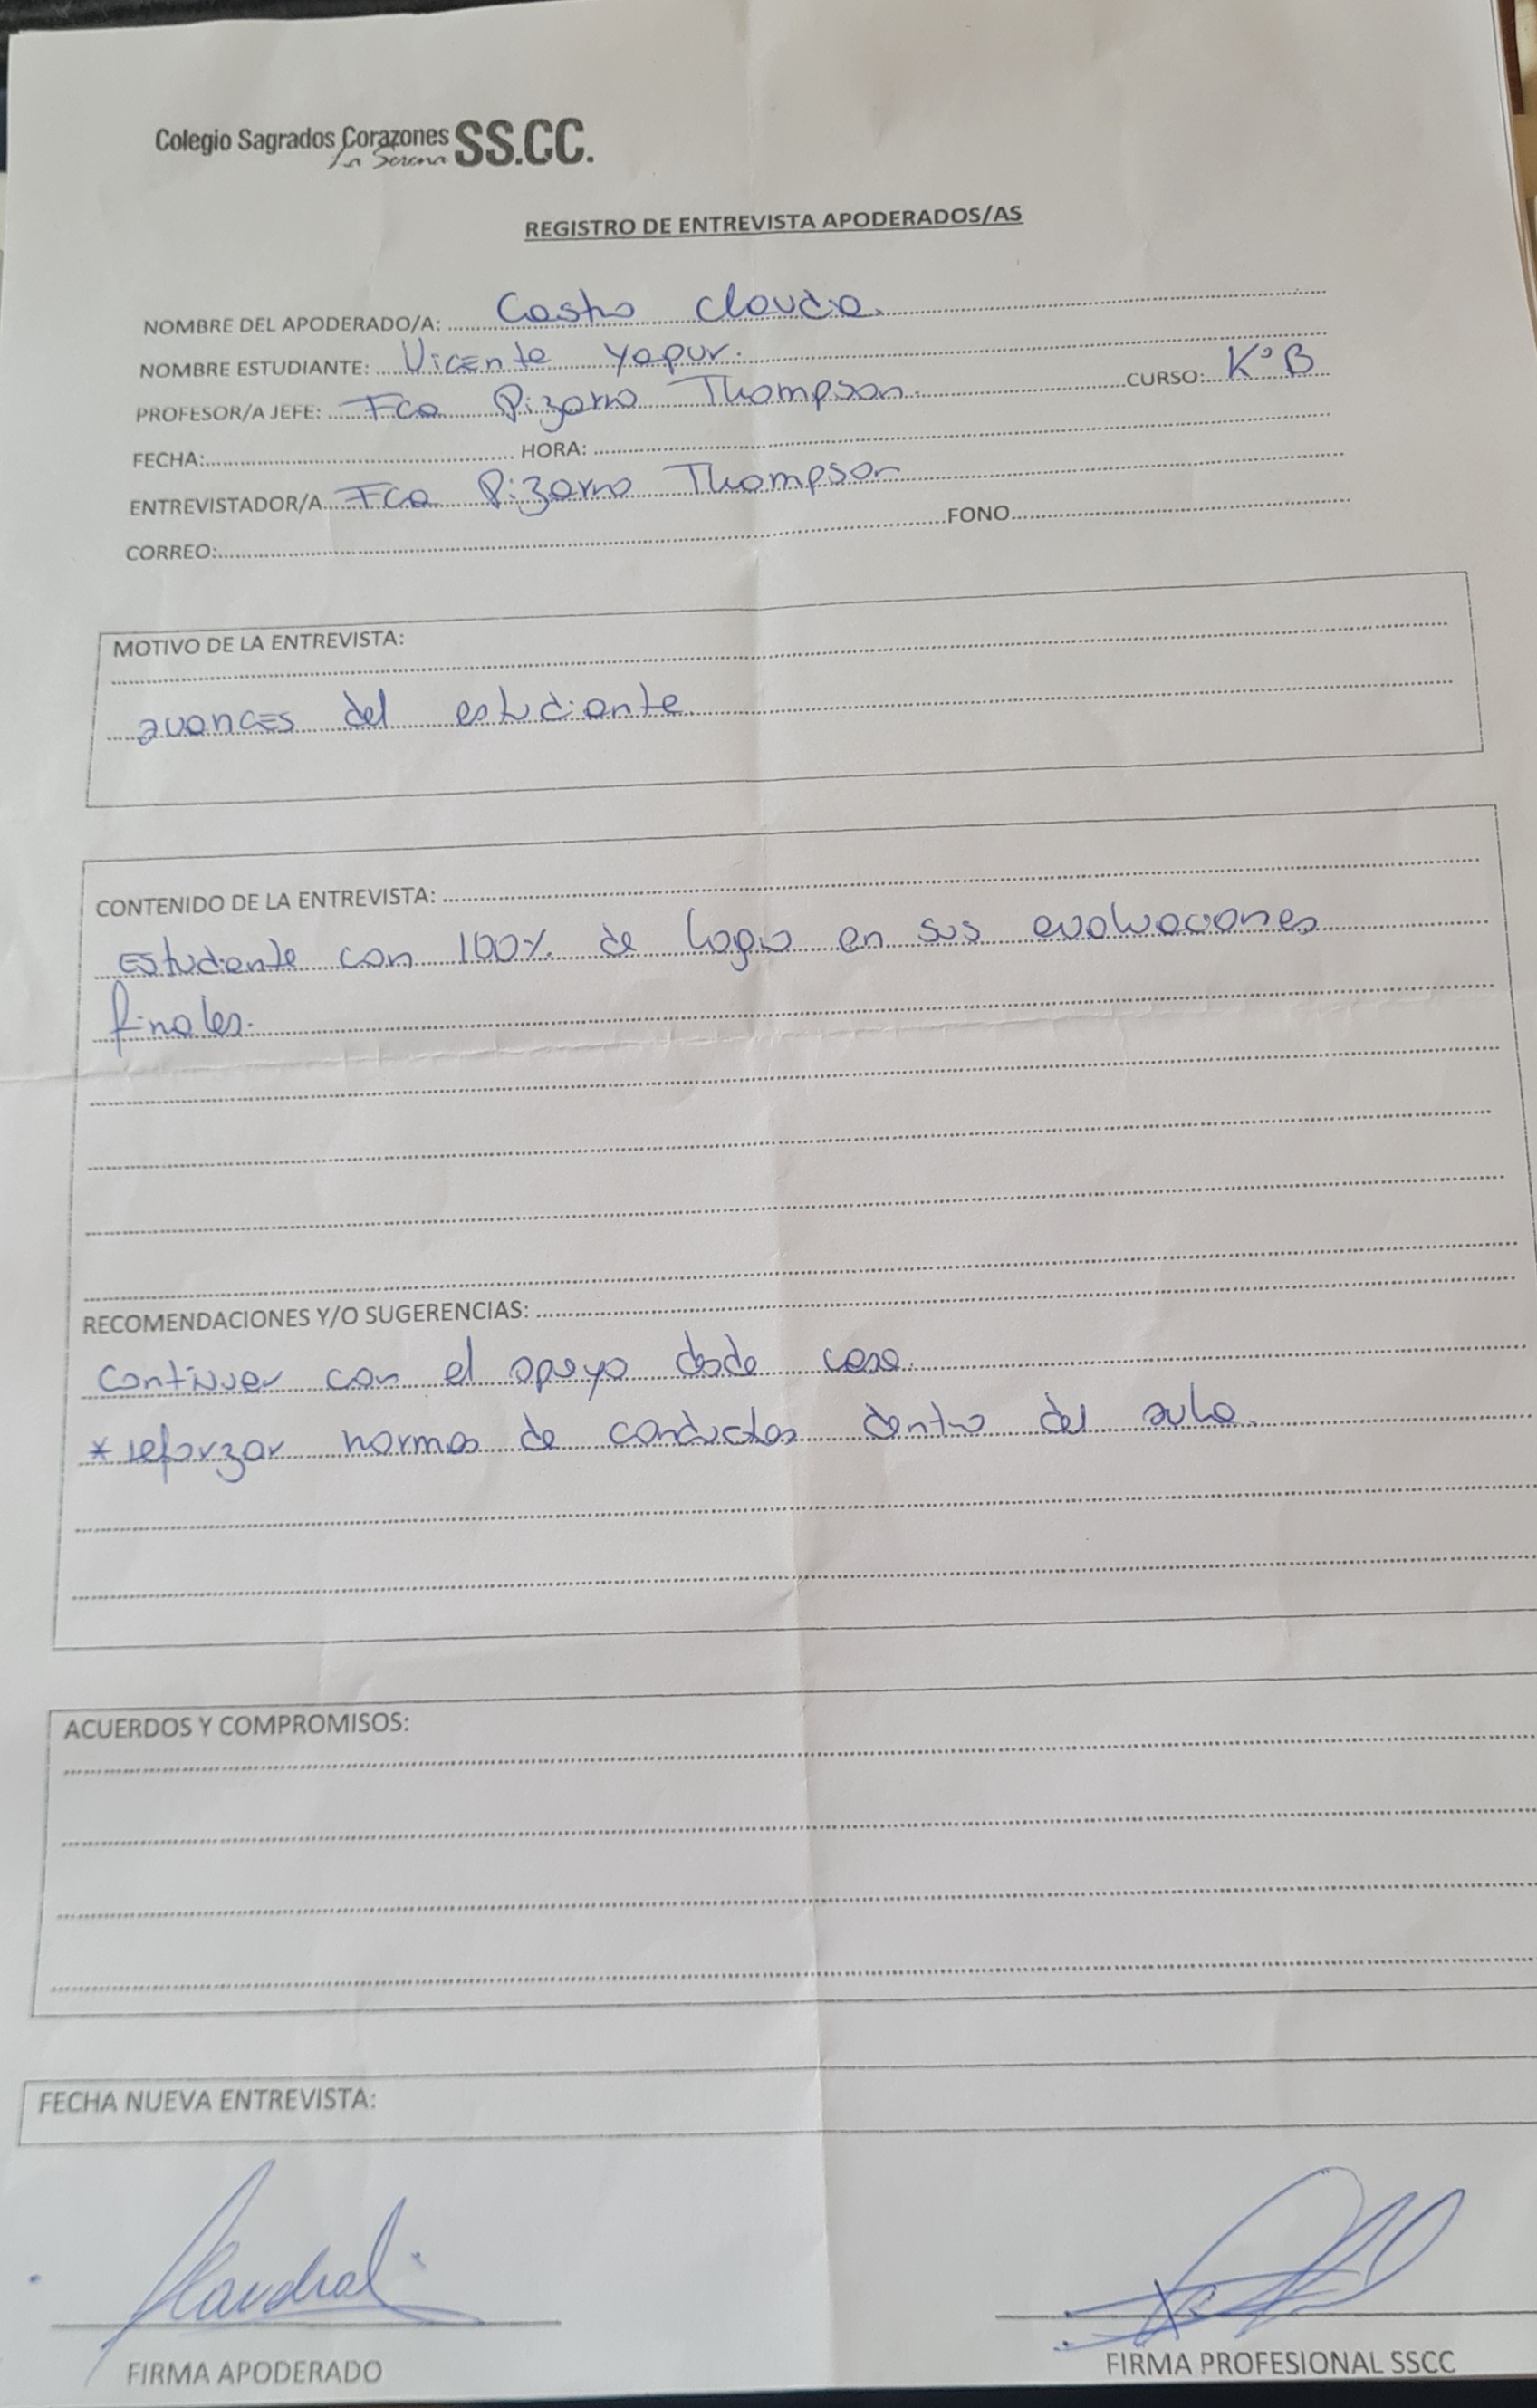 Colegio Sagrados Corazones SS.CC.
La Serena
REGISTRO DE ENTREVISTA APODERADOS/AS
NOMBRE DEL APODERADO/A: Castro Claudia.
NOMBRE ESTUDIANTE: Vicente Yapur.
PROFESOR/A JEFE: Fca Pizarro Thompson. CURSO: K°B
FECHA: HORA:
ENTREVISTADOR/A Fca Pizarro Thompson
CORREO: FONO
MOTIVO DE LA ENTREVISTA:
avances del estudiante
CONTENIDO DE LA ENTREVISTA:
Estudiante con 100% de logro en sus evaluaciones
finales.
RECOMENDACIONES Y/O SUGERENCIAS:
Continuar con el apoyo desde casa.
* reforzar normas de conductas dentro del aula.
ACUERDOS Y COMPROMISOS:
FECHA NUEVA ENTREVISTA:
FIRMA APODERADO FIRMA PROFESIONAL SSCC